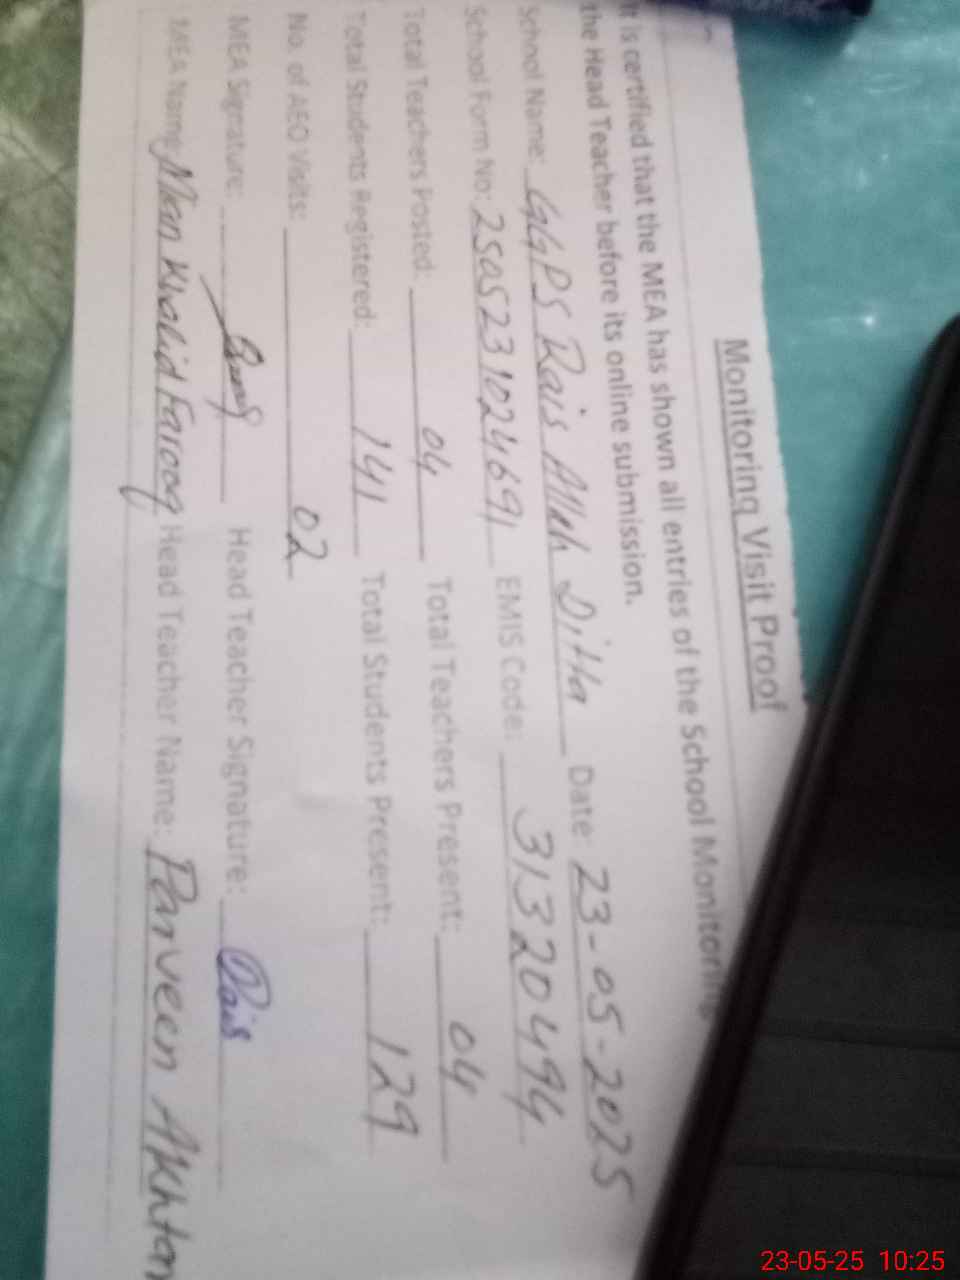 Monitoring Visit Proof
It is certified that the MEA has shown all entries of the School Monitoring
the Head Teacher before its online submission.
School Name: GGPS Rais Allah Ditta Date: 23-05-2025
School Form No: 2505231024691 EMIS Code: 31320494
Total Teachers Posted: 04 Total Teachers Present: 04
Total Students Registered: 141 Total Students Present: 129
No. of AEO Visits: 02
MEA Signature: Head Teacher Signature:
MEA Name: Mian Khalid Farooq Head Teacher Name: Parveen Akhtar
23-05-25 10:25